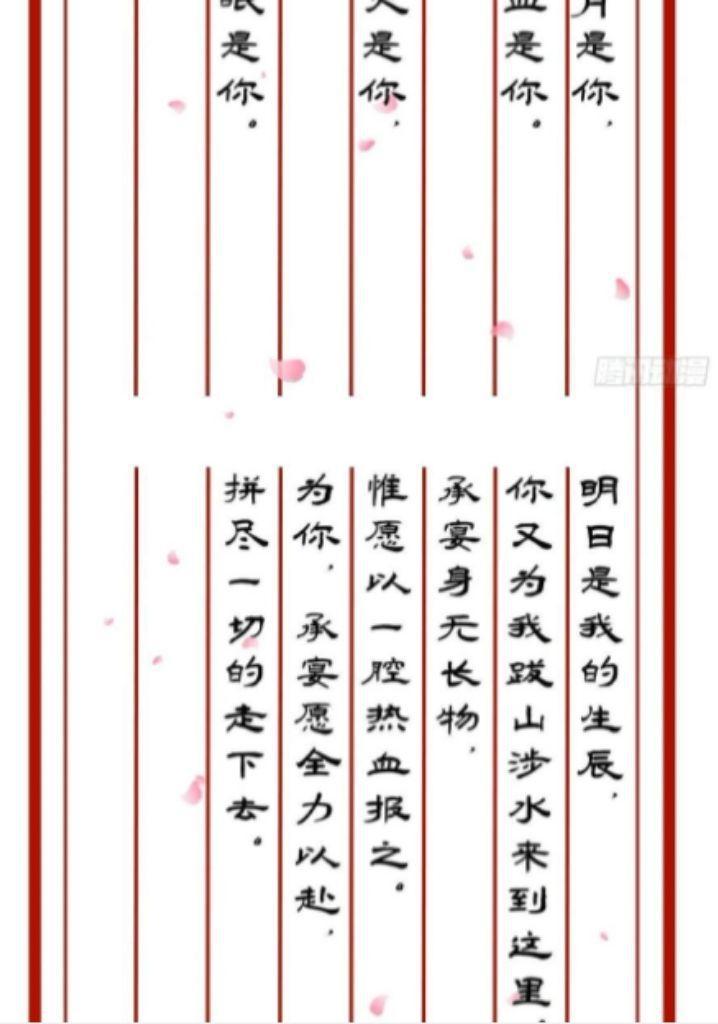 是你，
是你。
是你，
眼是你。
明日是我的生辰，
你又为我跋山涉水来到这里，
承宴身无长物，
惟愿以一腔热血报之。
为你，承宴愿全力以赴，
拼尽一切的走下去。
腾讯动漫